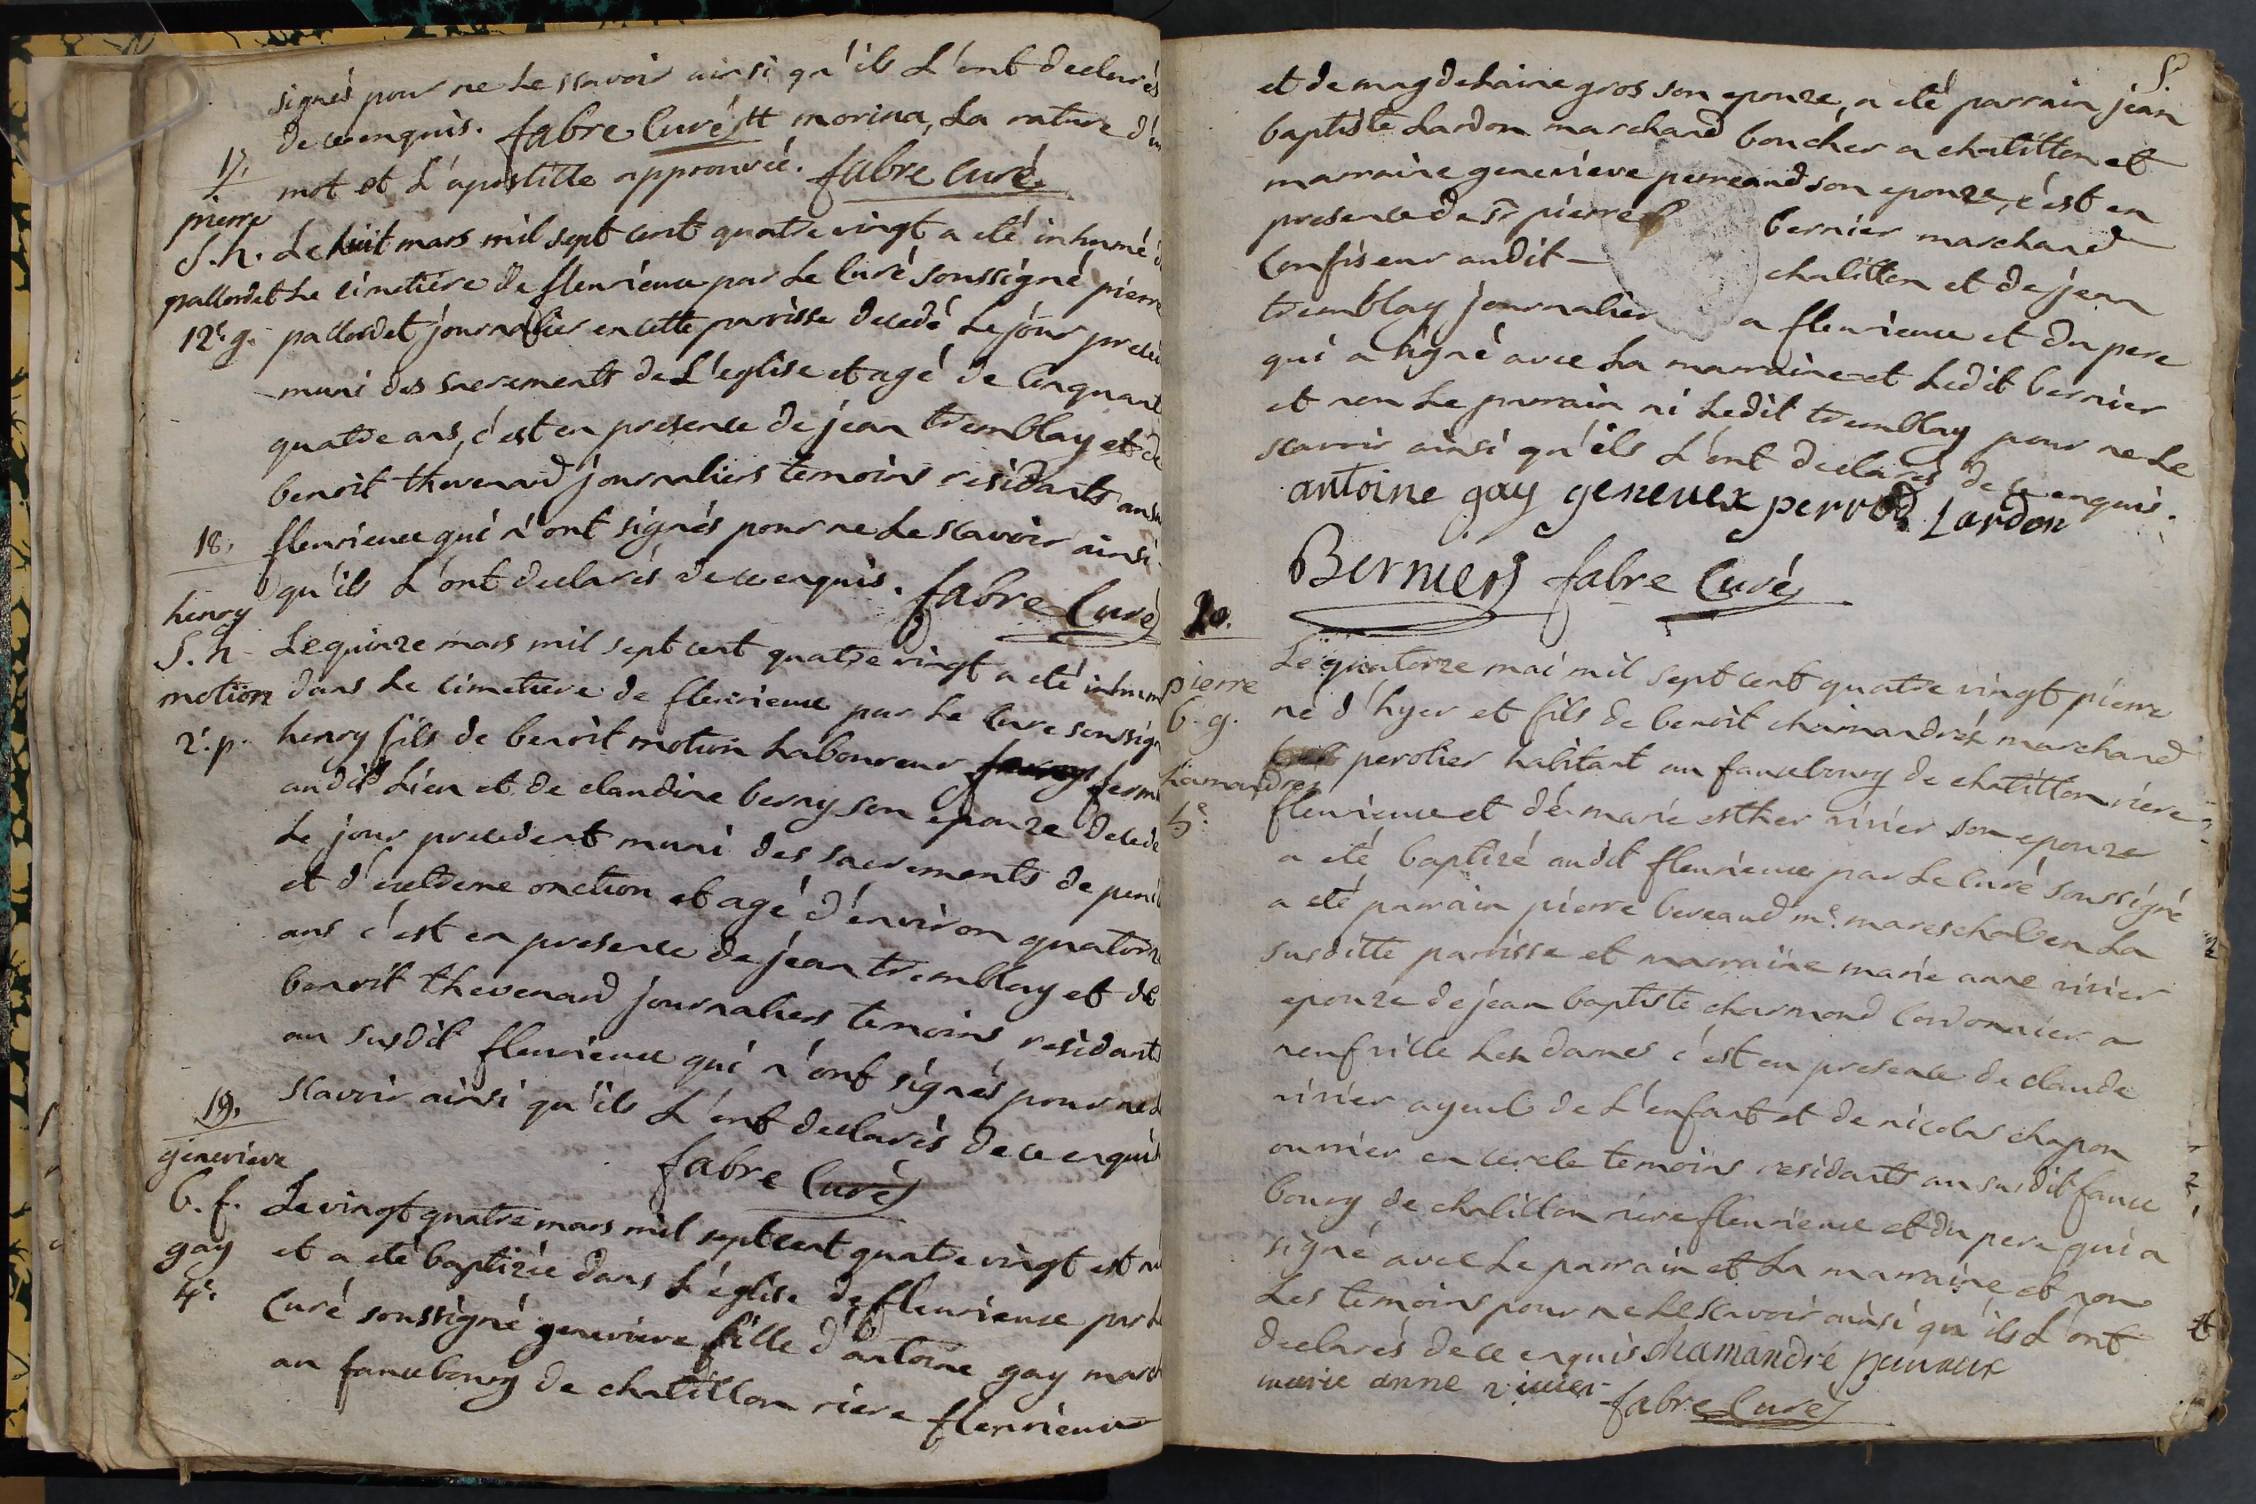 signés pour ne le sçavoir ainsi qu'ils L'ont declarés
de ce enquis. fabre Curé morina, La rature d'un
17,
mot et L'apostille approuvée. fabre Curé
pierre
S. h. Le huit mars mil sept cent quatre vingt a eté inhumé
pallordet Le cimetiere de fleurieux par Le Curé soussigné pierre
12e g. pallordet journalier en cette parrisse decedé Le jour preced
muni des sacrements de L'eglise et agé de cinquant
quatre ans, c'est en presence de jean tremblay et de
benoit thevenard journaliers temoins residants au
18, fleurieux qui n'ont signés pour ne Le scavoir ainsi
qu'ils L'ont declarés de ce enquis. fabre Curé
henry
S. h Le quinze mars mil sept cent quatre vingt a eté inhum
motion dans Le cimetiere de fleurieux par Le Curé soussig
2e. p. henry fils de benoit motion Laboureur ferm
audit Lieu et de claudine berny son epouze decedé
Le jour precedent muni des sacrements de peni
et d'extreme onction et agé d'environ quatorze
ans c'est en presence de jean tremblay et de
benoit thevenard journaliers temoins residants
au susdit fleurieux qui n'ont signés pour ne
scavoir ainsi qu'ils L'ont declarés de ce enquis
19,
fabre Curé
genevieve
b. f. Le vingt quatre mars mil sept cent quatre vingt est né
gay et a eté baptizée dans L'église de fleurieux par Le
4e. Curé soussigné genevieve fille d'antoine gay march
au fauxbourg de chatillon riere fleurieux
5.
et de magdelaine gros son epouze, a eté parrain jean
baptiste Lardon marchand boucher a chatillon et
marraine genevieve perreaud son epouze, c'est en
presence de sr pierre bernier marchand
Confiseur audit chatillon et de jean
tremblay journalier a fleurieux et du pere
qui a signé avec La marraine et Ledit bernier
et non Le parrain ni Ledit tremblay pour ne Le
scavoir ainsi qu'ils L'ont declarés de ce enquis.
antoine gay geneuex perrod Lardon
Bernier fabre Curé
20.
pierre Le quatorze mai mil sept cent quatre vingt pierre
b. g. né d'hyer et fils de benoit chamandré marchand
hamandré perolier habitant au fauxbourg de chatillon riere
5e. fleurieux et de marie esther vivier son epouze
a eté baptizé audit fleurieux par Le Curé soussigné
a eté parrain pierre beveaud me. mareschal en La
susditte parrisse et marraine marie anne vivier
epouze de jean baptiste charmond Cordonnier a
neufville Les dames c'est en presence de claude
vivier ayeul de L'enfant et de nicolas chapon
ouvrier en cercle temoins residants au susdit faux
bourg de chatillon riere fleurieux et du pere qui a
signé avec Le parrain et La marraine et non
Les temoins pour ne Le scavoir ainsi qu'ils L'ont
declarés de ce enquis chamandré
marie anne vivier fabre Curé